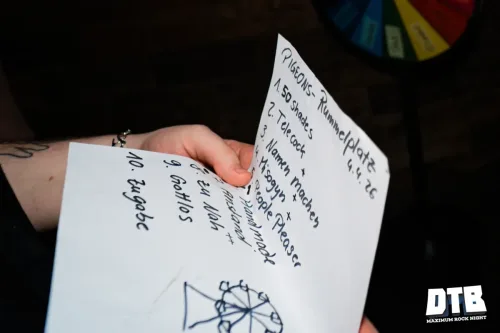 PIGEONS - Rummelplatz
4.4.26
1. 50 Shades
2. Telecock +
3. Namen machen
4. Misogyn +
People Pleaser
Handmade
zu Nah ++
9. Gottlos
10. Zugabe
DTB
MAXIMUM ROCK NIGHT